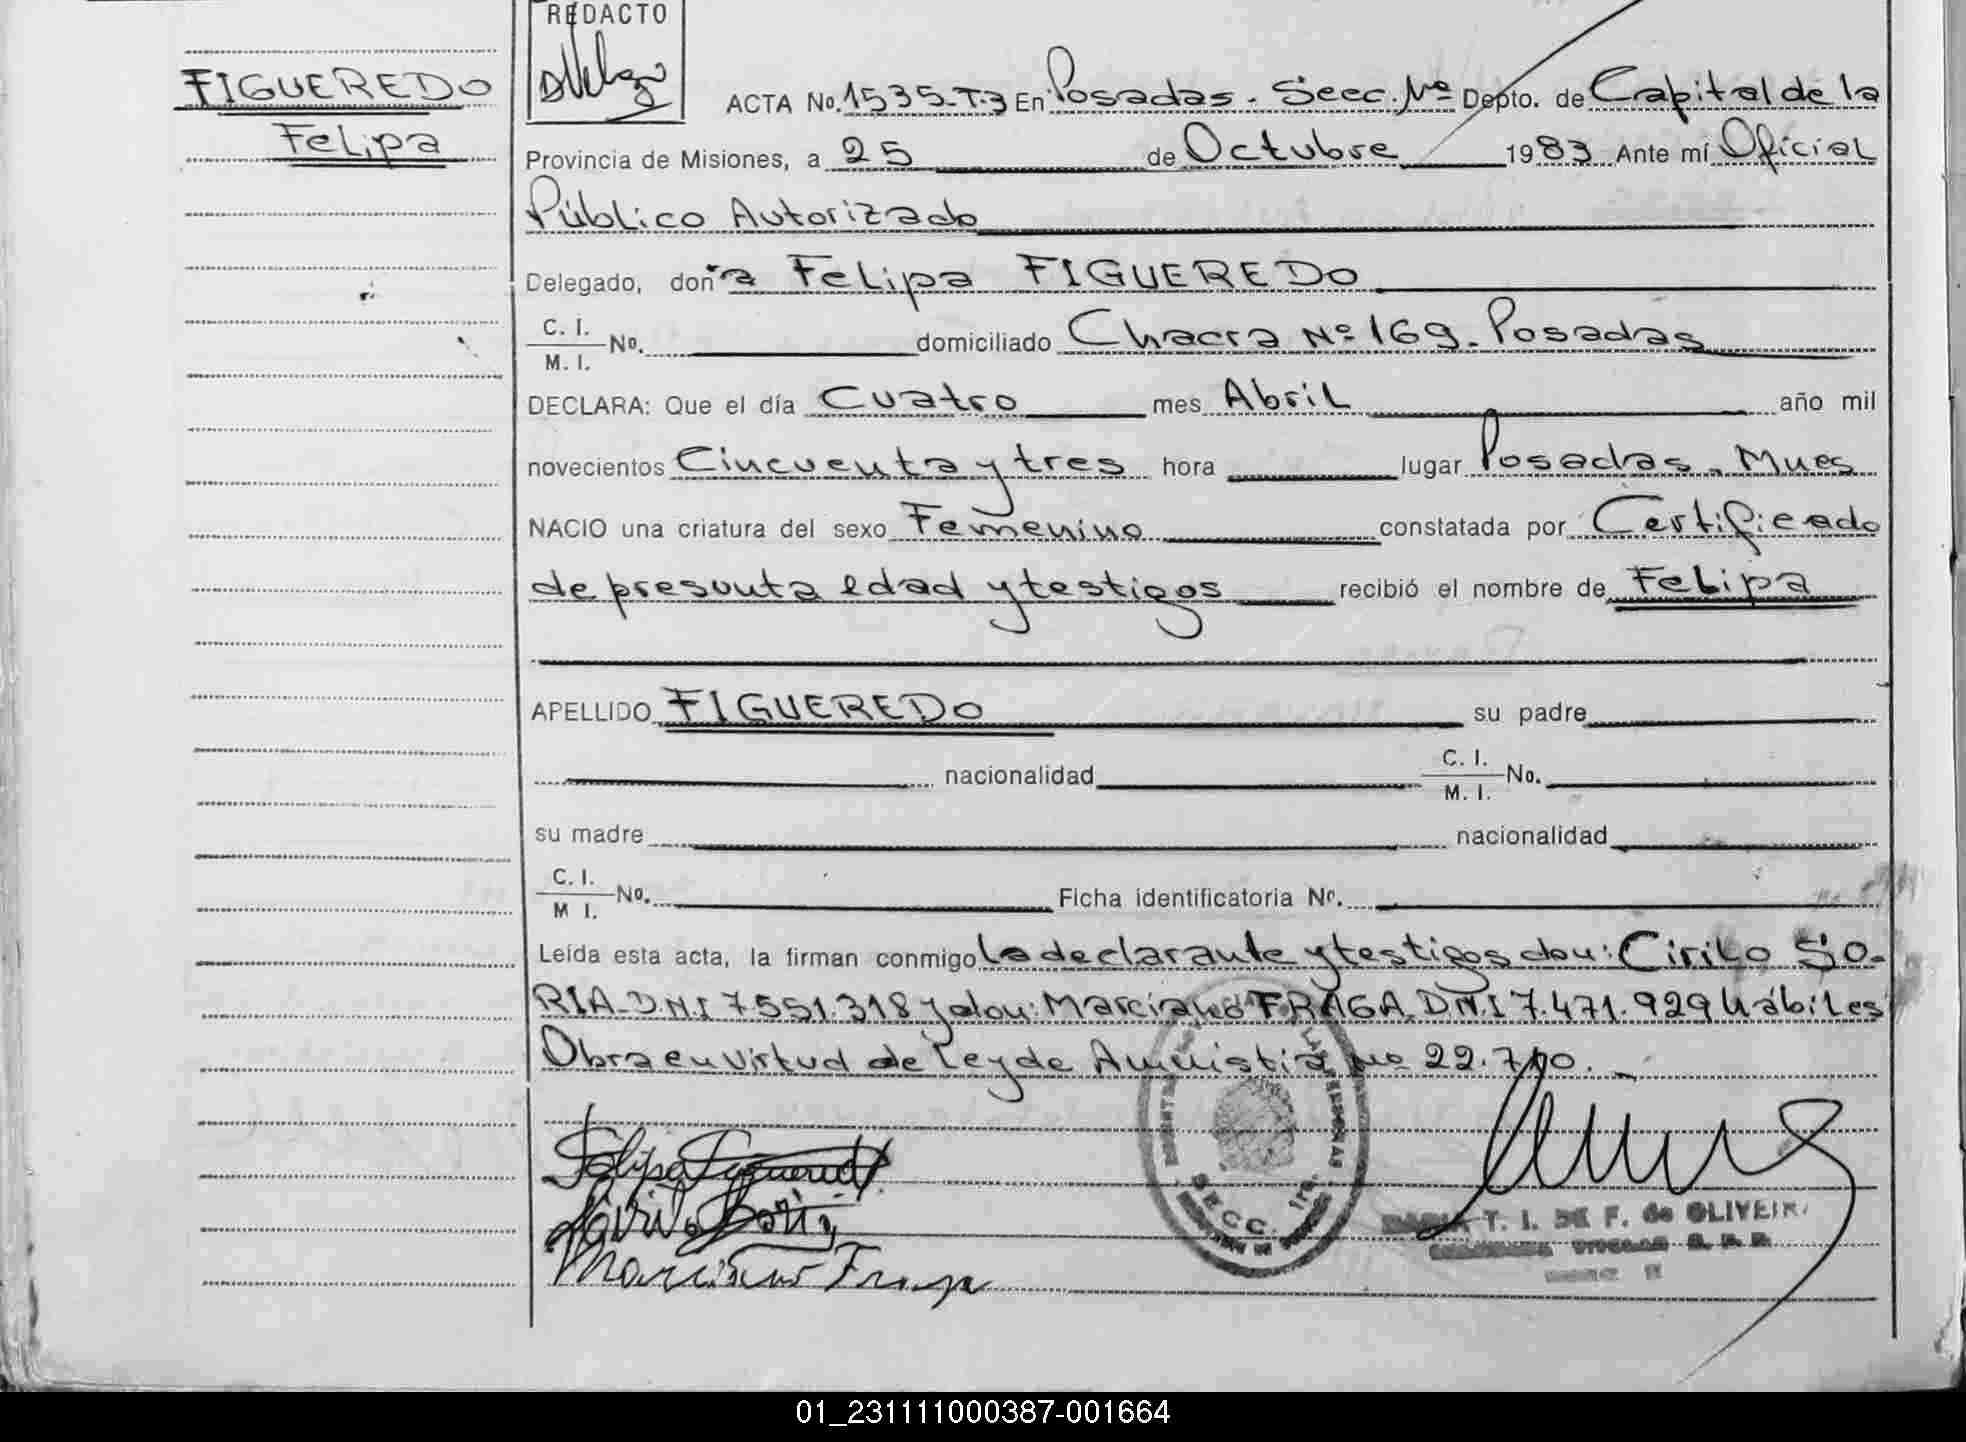 REDACTO
FIGUEREDO
Felipa
ACTA No. 1535-T.3 En Posadas. Secc. 1ra Depto. de Capital de la
Provincia de Misiones, a 25 de Octubre 1983 Ante mí Oficial
Público Autorizado
Delegado, doña Felipa FIGUEREDO
C. I.
M. I. No. domiciliado Chacra Nº 169. Posadas
DECLARA: Que el día Cuatro mes Abril año mil
novecientos Cincuenta y tres hora lugar Posadas. Mnes
NACIO una criatura del sexo Femenino constatada por Certificado
de presunta edad y testigos recibió el nombre de Felipa
APELLIDO FIGUEREDO su padre
nacionalidad C. I.
M. I. No.
su madre nacionalidad
C. I.
M I. No. Ficha identificatoria No.
Leída esta acta, la firman conmigo la declarante y testigos don: Cirilo SO-
RIA. D.N.I 7.551.318 y don: Marciano FRAGA D.N.I 7.471.929 hábiles
Obra en virtud de Ley de Amnistia Nº 22.710.
Felipa Figueredo
Cirilo Soria
Marciano Fraga
SECC. 1ra.
T. I. DE F. de OLIVEIRA
01_231111000387-001664